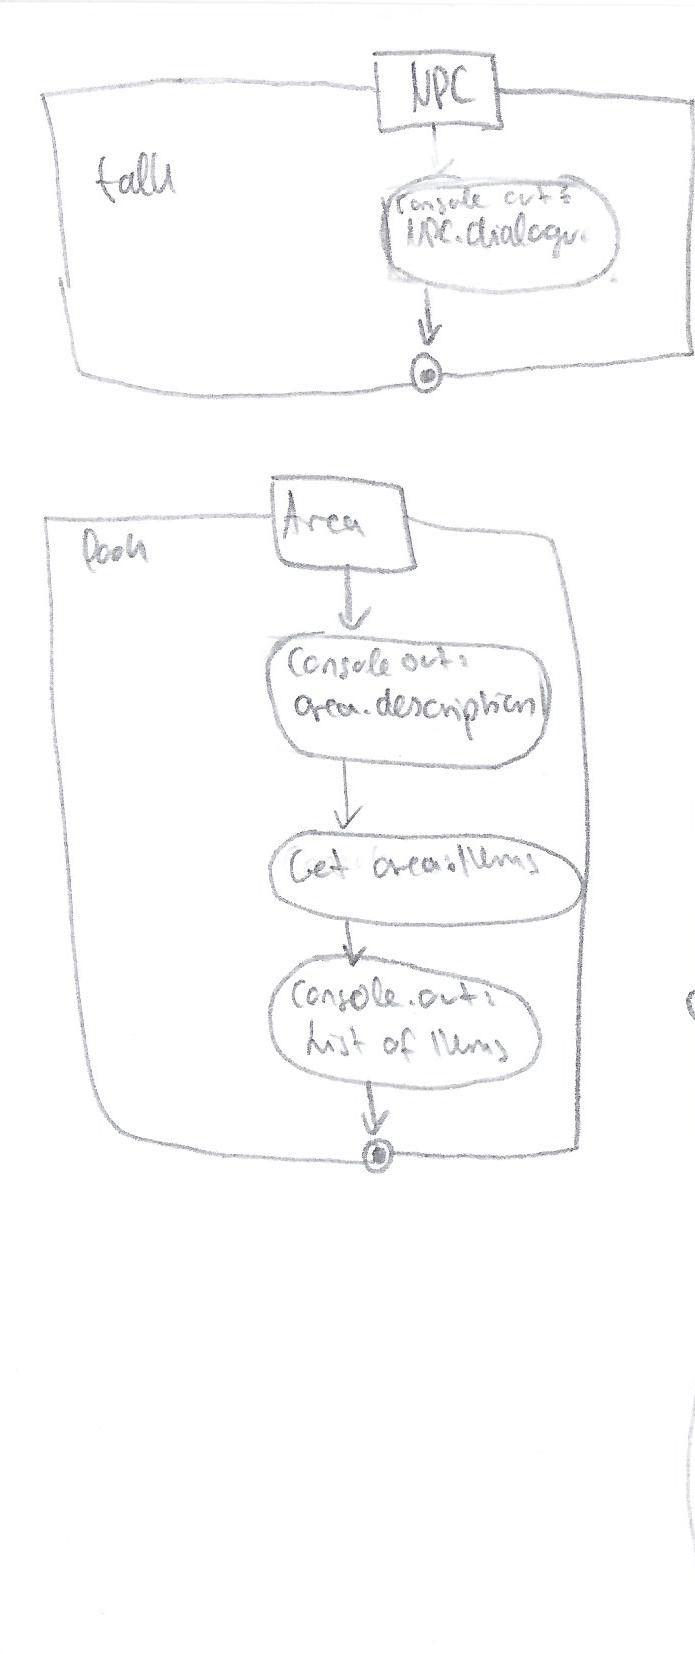 NPC
talk
Console out:
NPC.dialogue
Area
look
Console out:
area.description
Get area.Items
Console.out:
List of Items